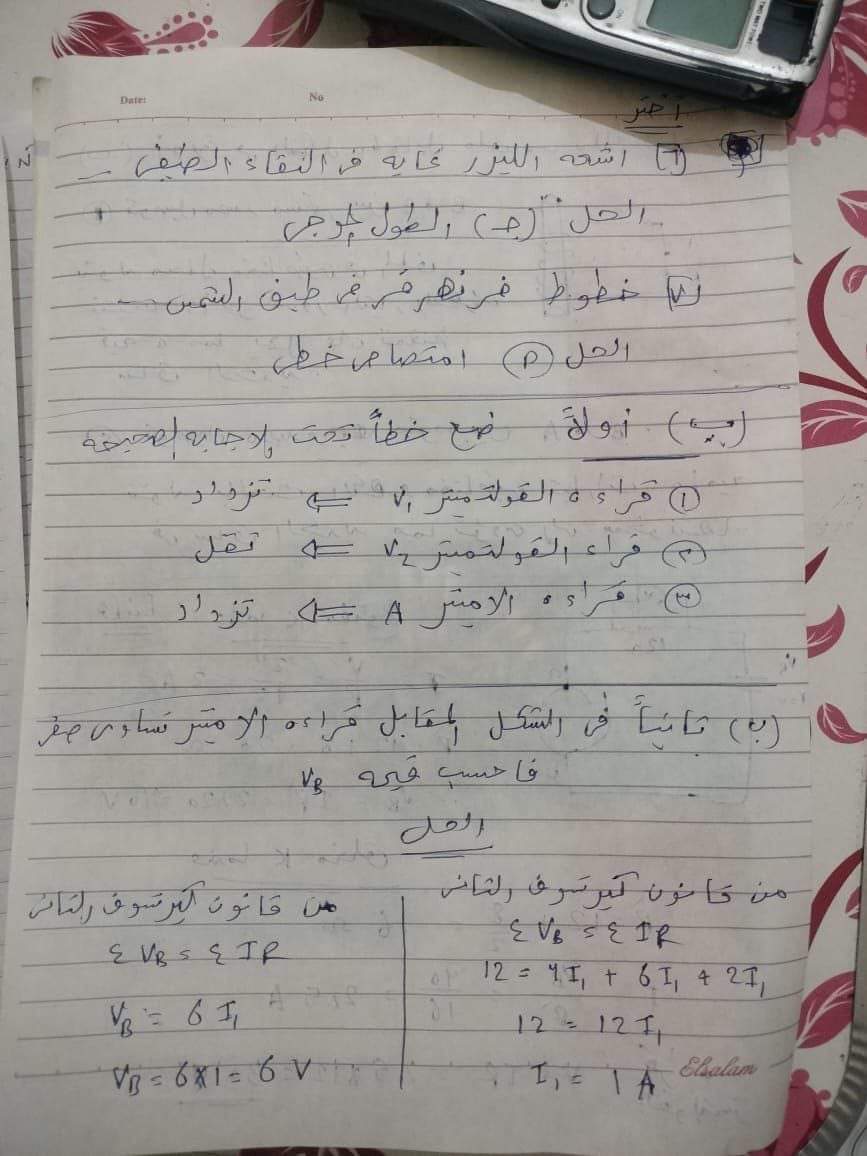 Date:
No
اختر
[٦] اشعه الليزر غايه فى النقاء الطيفى --
الحل (جـ) الطول الموجى
[٧] خطوط فرنهوفر فى طيف الشمس --
الحل (٢) امتصاص خطى
(ب) أولاً ضع خطاً تحت الاجابه الصحيحه
(١) قراءه الفولتميتر V₁ ⇐ تزداد
(٢) قراءه الفولتميتر V₂ ⇐ تقل
(٣) قراءه الاميتر A ⇐ تزداد
(ب) ثانياً فى الشكل المقابل قراءه الاميتر تساوى صفر
فاحسب قيمه V_B
الحل
من قانون كيرشوف الثانى
Σ V_B = Σ IR
12 = 4I₁ + 6I₁ + 2I₁
12 = 12 I₁
I₁ = 1 A
من قانون كيرشوف الثانى
Σ V_B = Σ IR
V_B = 6 I₁
V_B = 6×1 = 6 V
Elsalam